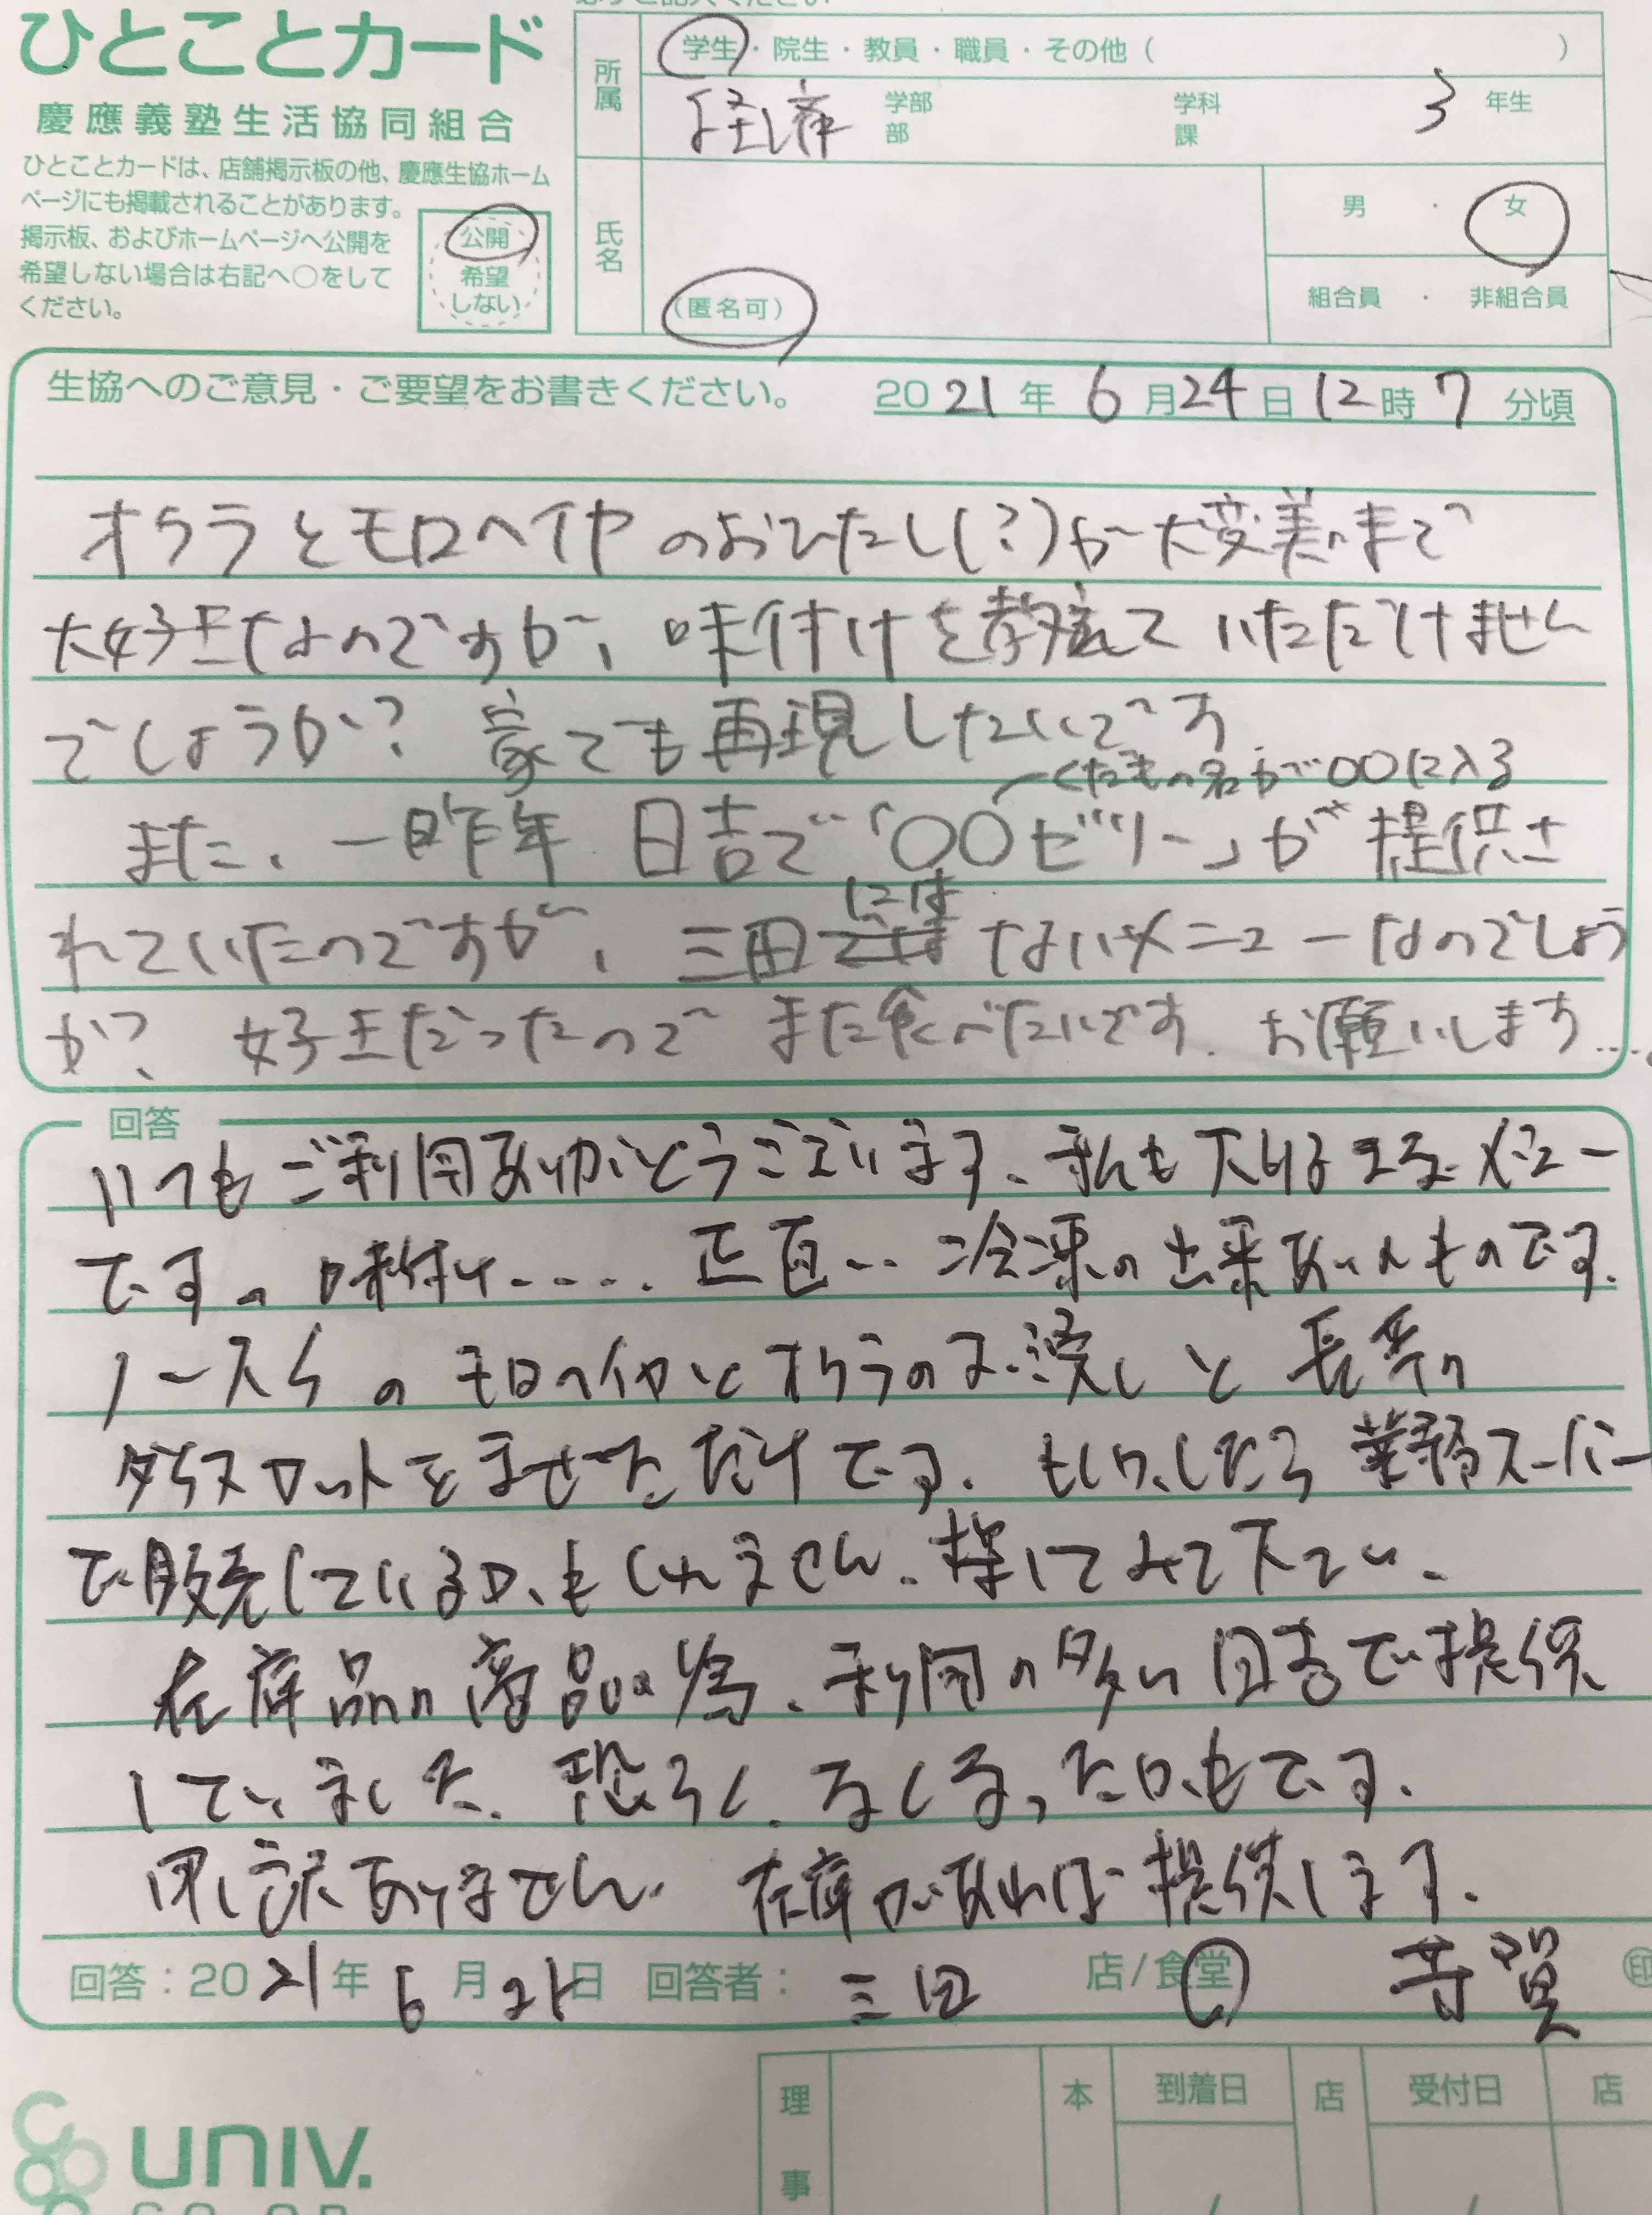 ひとことカード
慶應義塾生活協同組合
ひとことカードは、店舗掲示板の他、慶應生協ホーム
ページにも掲載されることがあります。
掲示板、およびホームページへ公開を
希望しない場合は右記へ○をして
ください。
公開
希望
しない
所属
学生・院生・教員・職員・その他（　　）
経済 学部 学科 3 年生
部 課
氏名
(匿名可)
男 ・ 女
組合員 ・ 非組合員
生協へのご意見・ご要望をお書きください。 2021年 6月24日12時7分頃
オクラとモロヘイヤのおひたし(?)が大変美味で
大好きなのですが、味付けを教えていただけません
でしょうか? 家でも再現したいです
くだもの名が〇〇に入る
また、一昨年 日吉で「〇〇ゼリー」が提供さ
れていたのですが、三田にはないメニューなのでしょう
か? 好きだったのでまた食べたいです。お願いします....。
回答
いつもご利用ありがとうございます。私も大好きなメニュー
です。味付け..... 正直... 冷凍の出来あいんものです。
ノースイのモロヘイヤとオクラのお浸しと長芋の
ダイスカットをまぜただけです。もしかしたら業務スーパー
で販売しているかもしれません。探してみて下さい。
在庫品の商品の為、利用の多い日吉で提供
していました。恐らく、なくなったかもです。
申し訳ありません。在庫があれば提供します。
回答：2021年6月 日 回答者： 三田 店/食堂 芳賀 印
univ.
CO-OP
理事
本
到着日
店
受付日
店